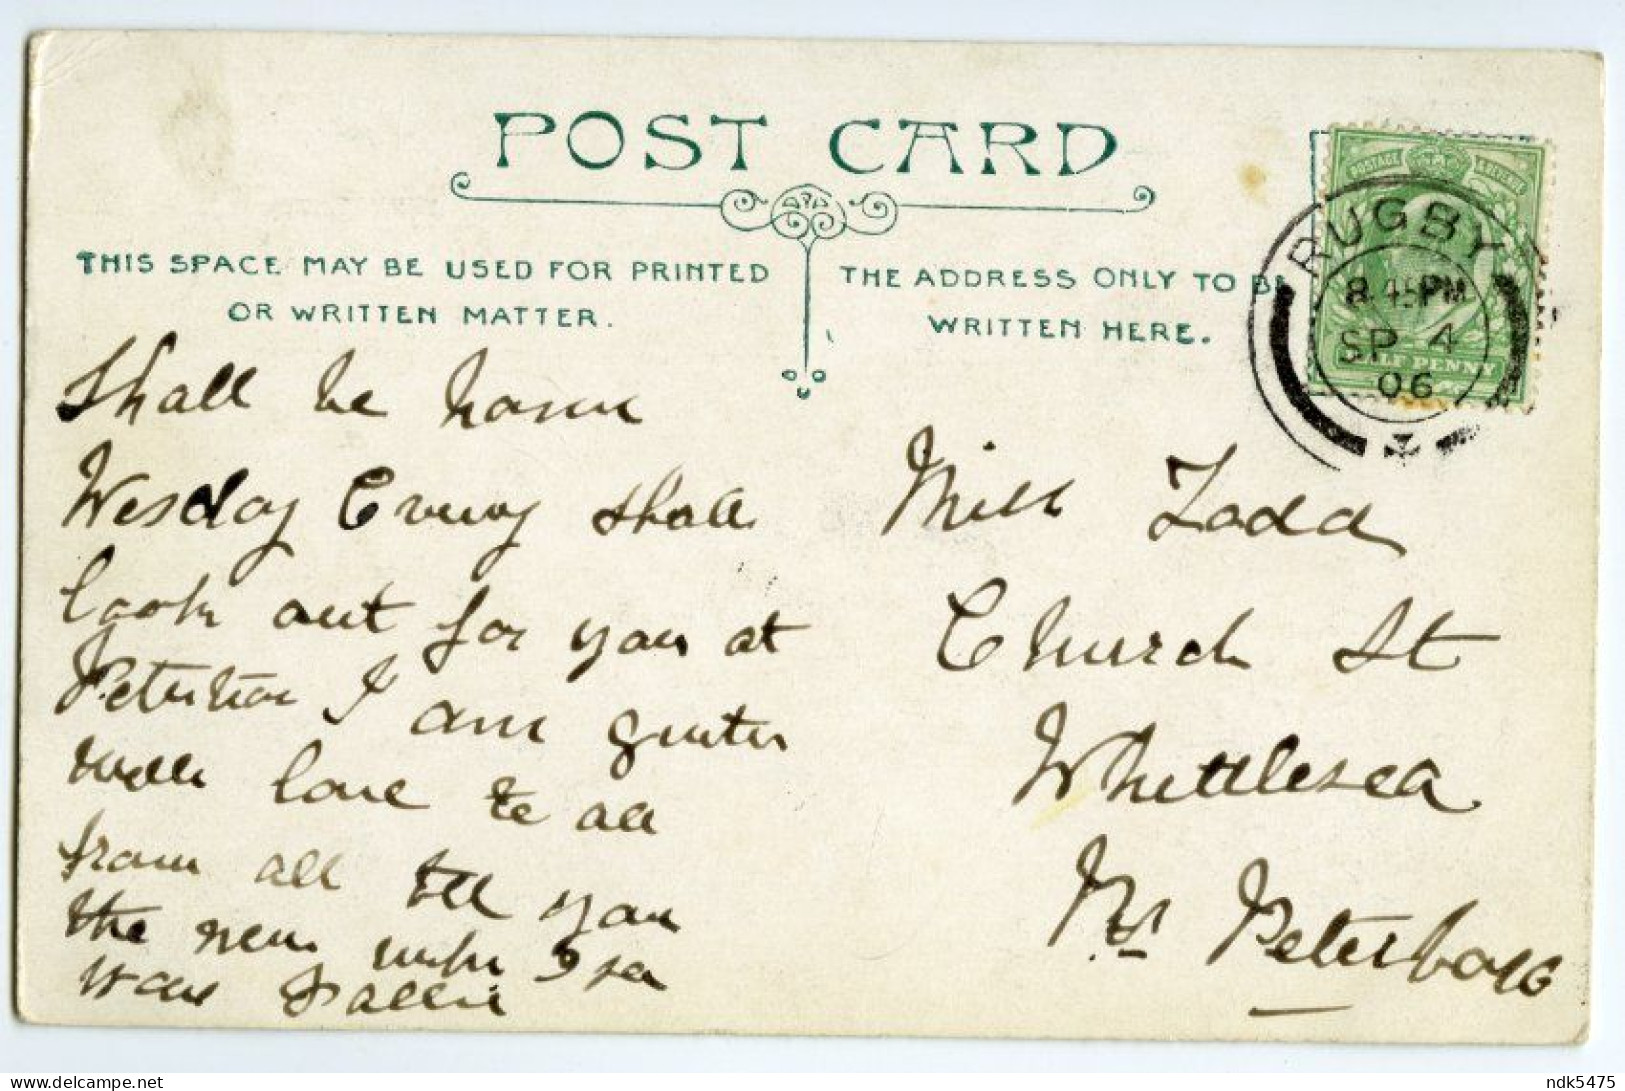 POST CARD
THIS SPACE MAY BE USED FOR PRINTED
OR WRITTEN MATTER.
THE ADDRESS ONLY TO BE
WRITTEN HERE.
POSTAGE & REVENUE
HALF PENNY
RUGBY
8.45 PM
SP 4
06
Shall be home
Wesday Evening shall
look out for you at
I am quite
well love to all
from all tell you
the news when I see
Sallie
Miss Todd
Church St
Whittlesea
Nr Peterboro
ndk5475